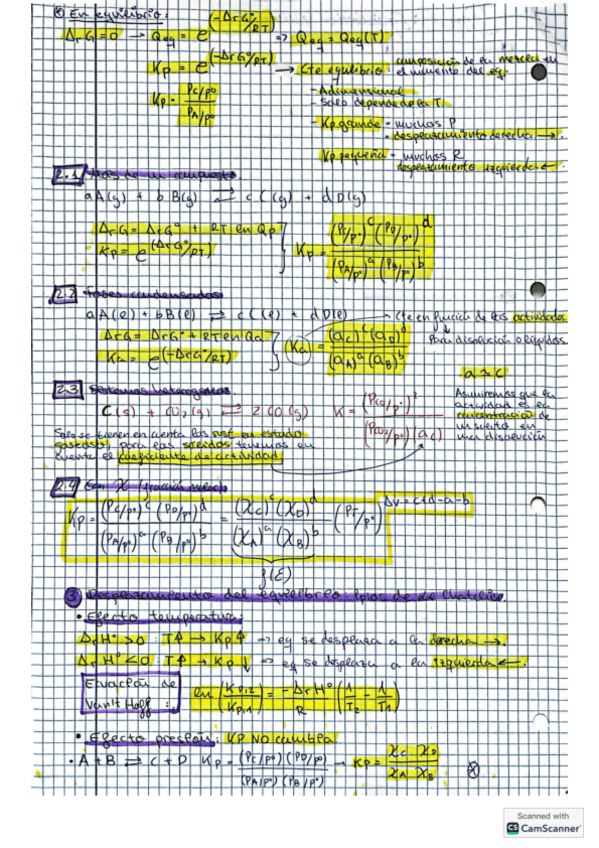 ⊗ En equilibrio:
ΔrG=0 → Qeq = e^(-ΔrG°/RT) => Qeq = Qeq(T)
Kp = e^(-ΔrG°/RT) → Cte equilibrio: composición de la mezcla en el momento del eq.
Kp = (Pc/p°)/(PA/p°)
- Adimensional
- Solo depende de la T.
Kp grande - muchos P
- desplazamiento derecha →.
Kp pequeña - muchos R
desplazamiento izquierda ←.
2.1 Más de un compuesto.
aA(g) + bB(g) ⇌ cC(g) + dD(g)
ΔrG = ΔrG° + RT ln Qp
Kp = e^(ΔrG°/RT)
} Kp = (Pc/p°)^c (PD/p°)^d / (PA/p°)^a (PB/p°)^b
2.2 Fases condensadas
aA(l) + bB(l) ⇌ cC(l) + dD(l) - Cte en función de las actividades
ΔrG = ΔrG° + RT ln Qa
Ka = e^(-ΔrG°/RT)
} Ka = (aC)^c (aD)^d / (aA)^a (aB)^b
Para disolución o líquidos.
a ≃ c
2.3 Sistemas heterogéneos.
C(s) + CO2(g) ⇌ 2CO(g) K = (PCO/p°)^2 / (PCO2/p°)(ac)
Asumiremos que la actividad es la concentración de un soluto en una disolución
Solo se tienen en cuenta las sust en estado gaseoso, para los sólidos tenemos en cuenta el coeficiente de actividad.
2.4 Con X (fracción molar)
Kp = (Pc/p°)^c (PD/p°)^d / (PA/p°)^a (PB/p°)^b = (XC)^c (XD)^d / (XA)^a (XB)^b - (PT/p°)^Δν = c+d-a-b
f(ξ)
3 Desplazamiento del equilibrio. Ppios de Le Chatelier.
• Efecto temperatura
ΔrH° > 0 : T↑ → Kp↑ => eq se desplaza a la derecha →.
ΔrH° < 0 : T↑ → Kp↓ => eq se desplaza a la izquierda ←.
Ecuación de Van't Hoff : ln (Kp,2/Kp,1) = -ΔrH°/R (1/T2 - 1/T1)
• Efecto presión: KP NO cambia
• A + B ⇌ C + D Kp = (Pc/p°)(PD/p°) / (PA/p°)(PB/p°) → KP = XC XD / XA XB ⊗
Scanned with
CS CamScanner